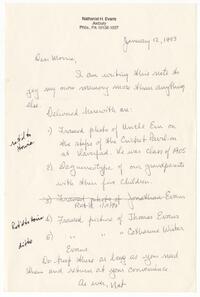 Nathaniel H. Evans
Awbury
Phila., PA 19138-1037
January 12, 1993
Dear Morris,
I am writing this note to
jog my own memory more than anything
else.
Delivered herewith are:
1) Framed photo of Uncle Em on
the steps of the Cricket Pavilion
at Haverford. He was class of 1905
2) Daguerreotype of our grandparents
with their five children.
3) Framed photo of Jonathan Evans
4) Framed picture of Thomas Evans
5) " " " Catharine Wister
Evans.
ditto
Do keep these as long as you need
them and return at your convenience.
As ever, Nat